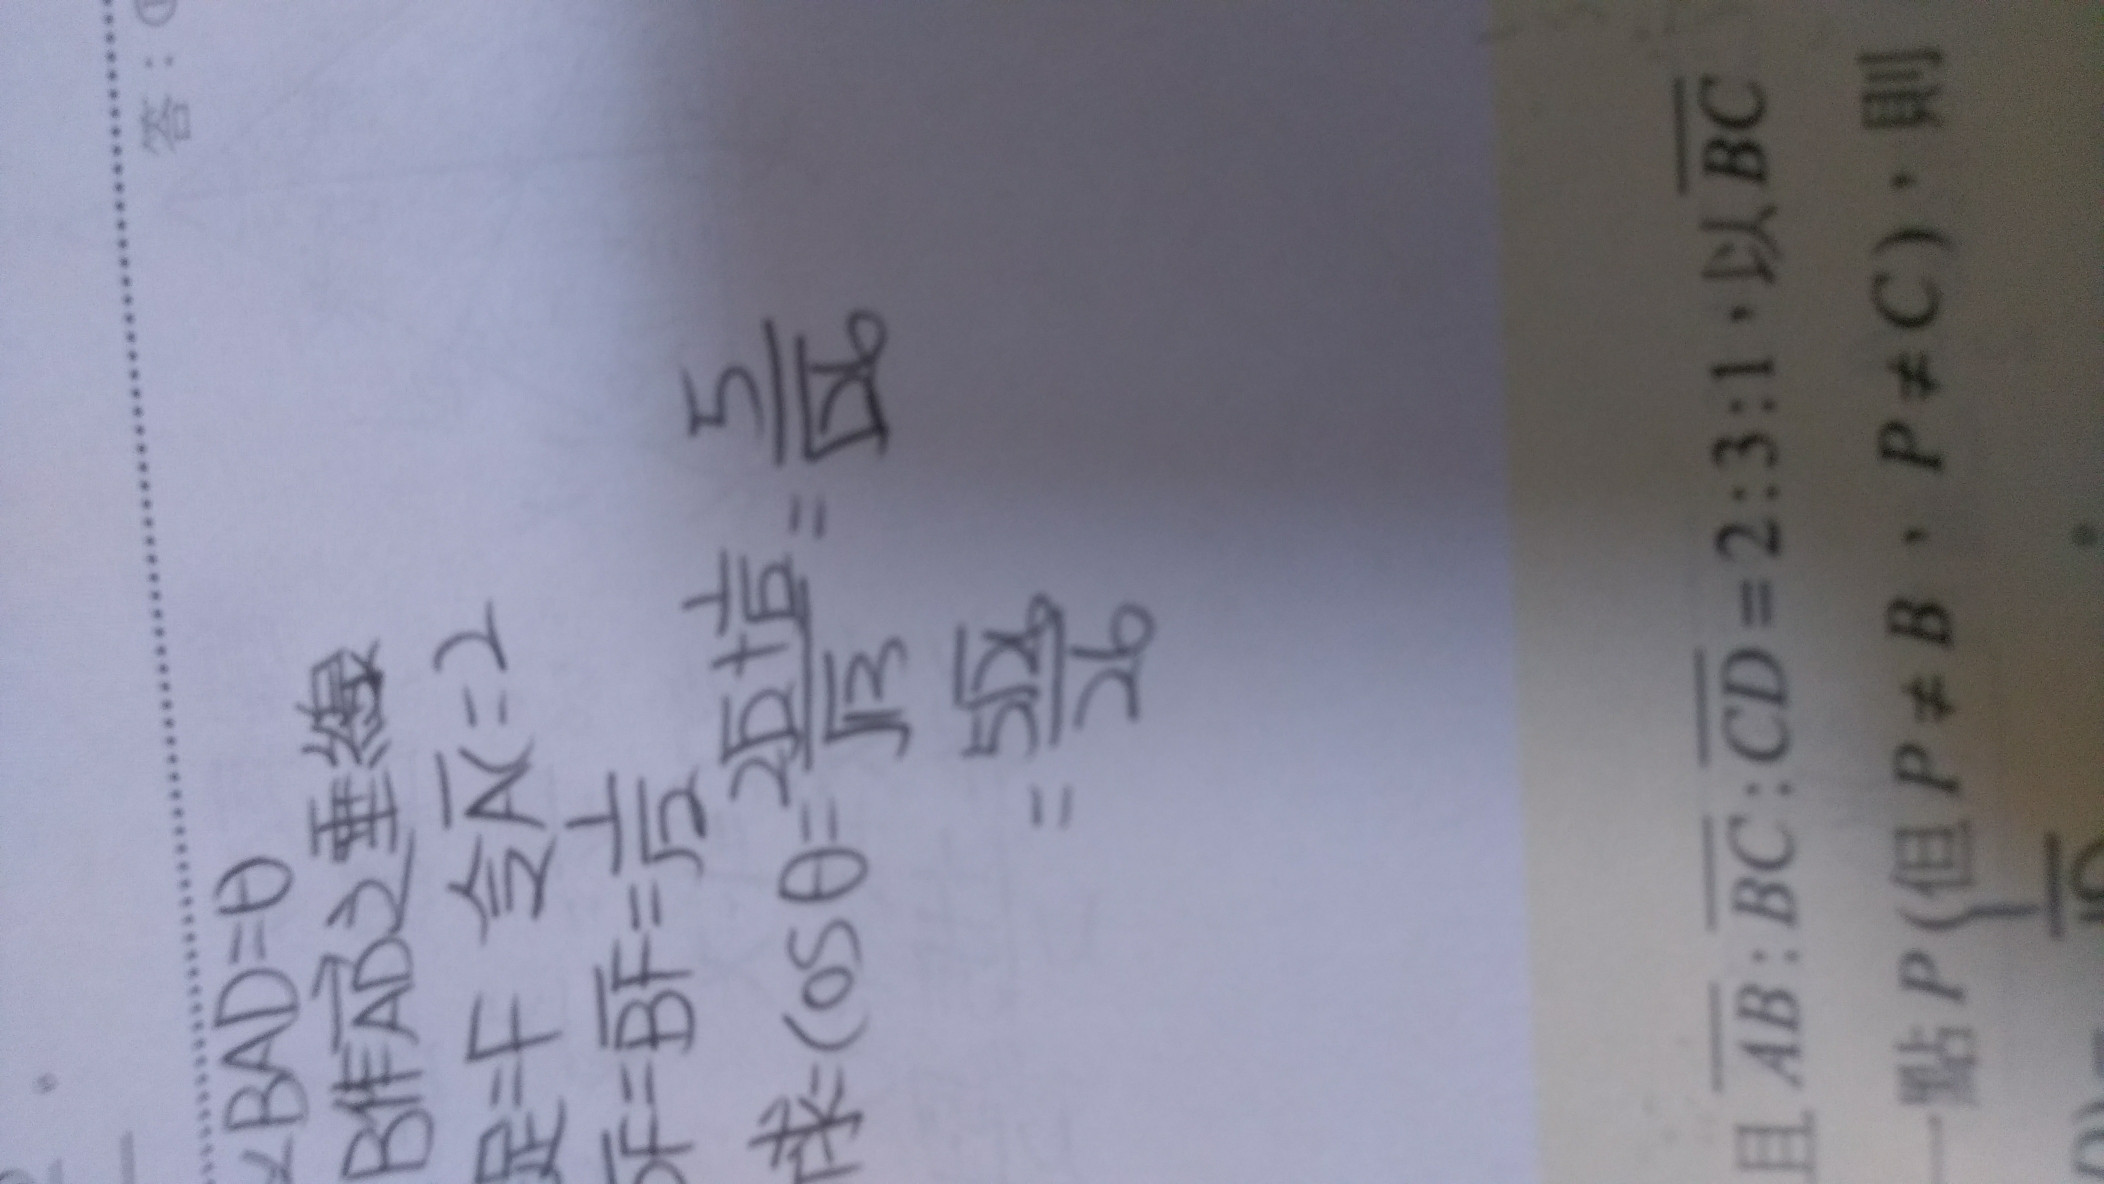 答:
∠BAD=θ
B作AD之垂線
足=F 令AC=2
DF=BF=1/√2
求=cosθ=(2√2+1/√2)/√13=5/√26
=5√26/26
且 AB:BC:CD=2:3:1,以BC
一點P(但P≠B,P≠C),則